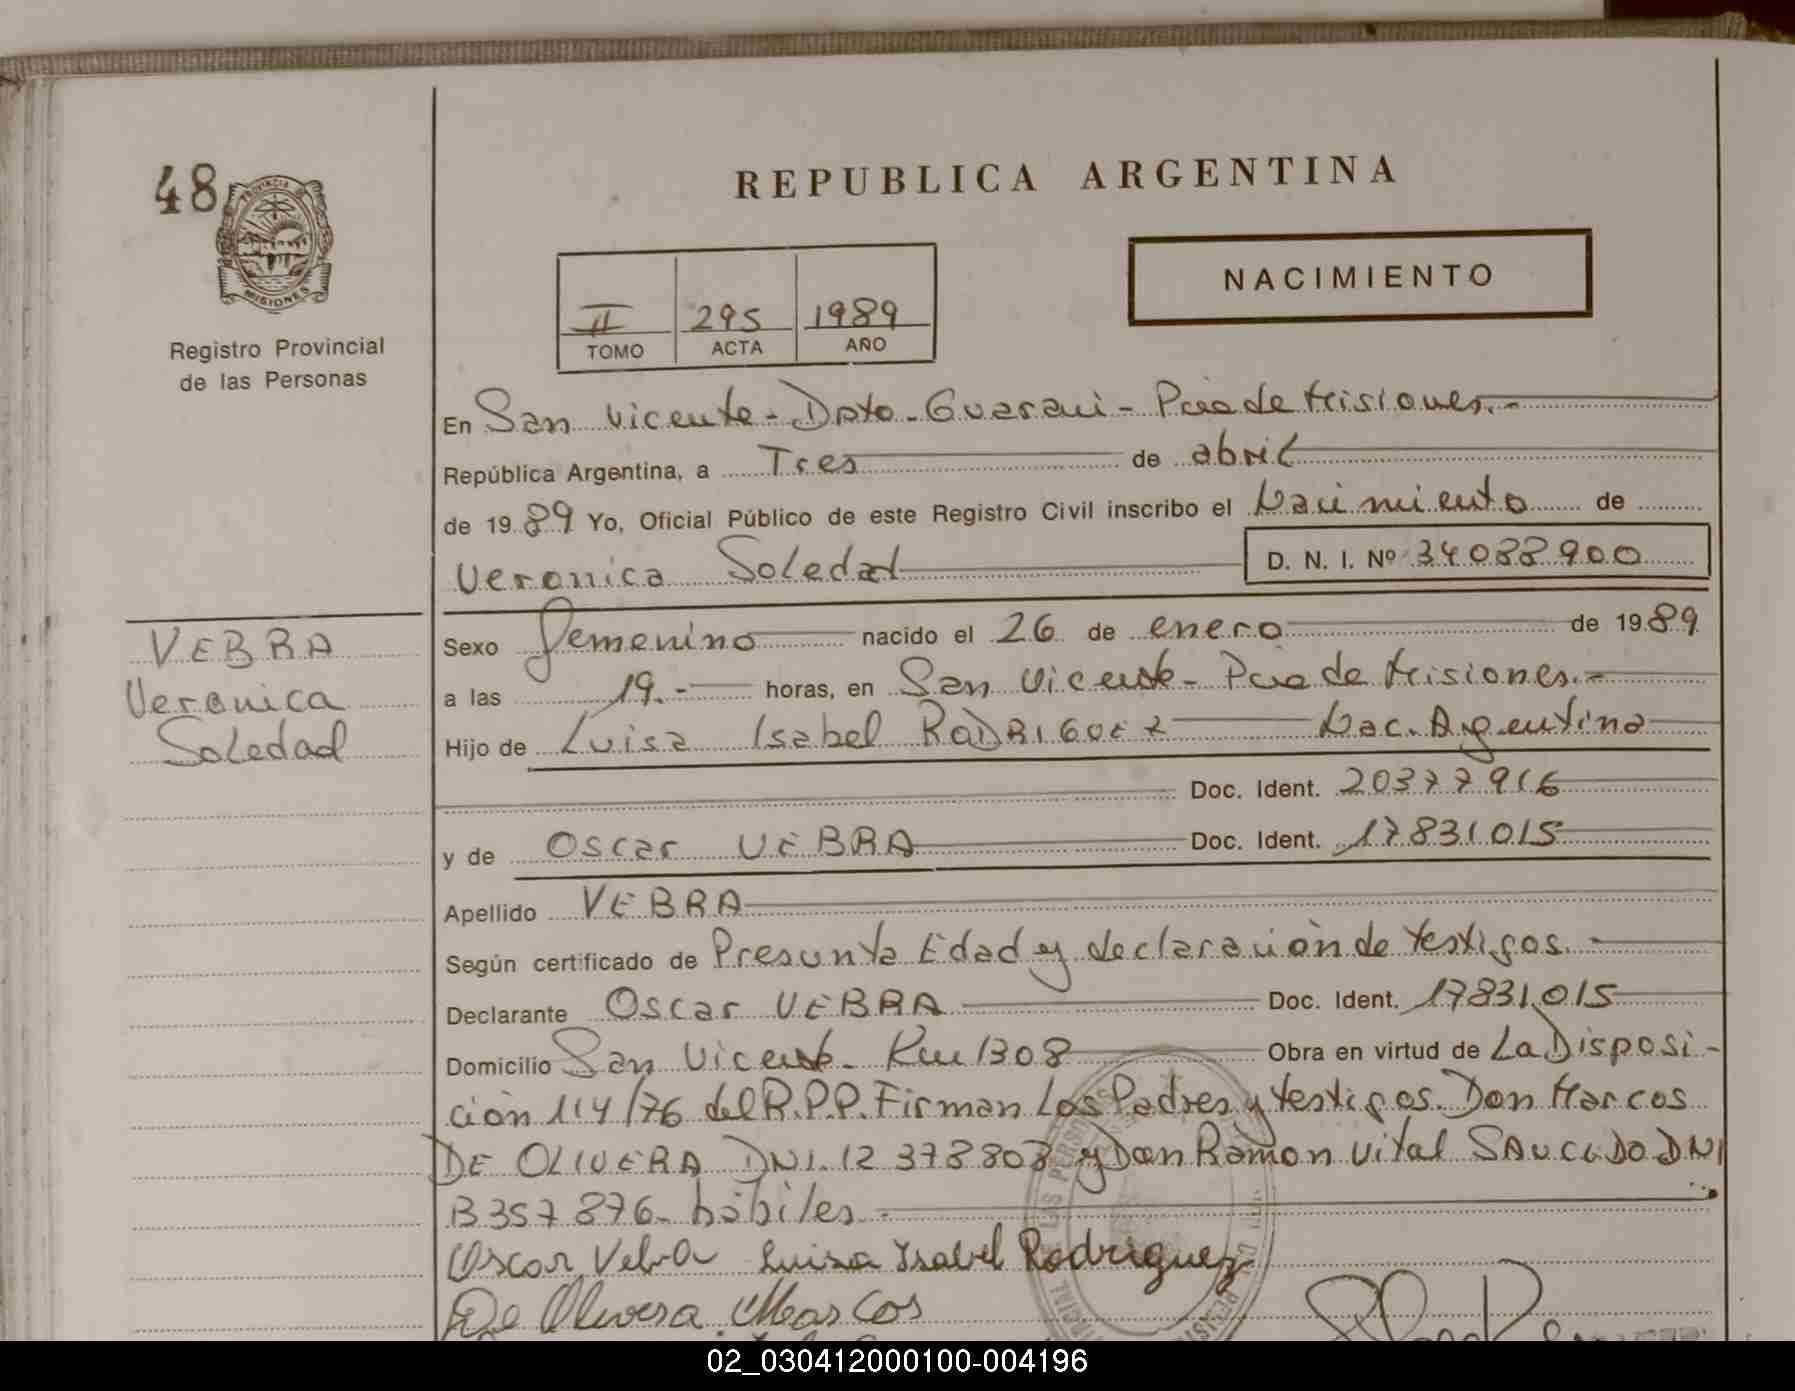 48
PROVINCIA DE
MISIONES
Registro Provincial
de las Personas
REPUBLICA ARGENTINA
NACIMIENTO
II 295 1989
TOMO ACTA AÑO
En San Vicente - Dpto - Guarani - Pcia de Misiones.-
República Argentina, a Tres de abril
de 1989 Yo, Oficial Público de este Registro Civil inscribo el Nacimiento de
Veronica Soledad D. N. I. Nº 34088900
VEBRA
Veronica
Soledad
Sexo femenino nacido el 26 de enero de 1989
a las 19.- horas, en San Vicente - Pcia de Misiones.-
Hijo de Luisa Isabel RODRIGUEZ Nac. Argentina
Doc. Ident. 20377916
y de Oscar VEBRA Doc. Ident. 17831015
Apellido VEBRA
Según certificado de Presunta Edad y declaración de testigos.-
Declarante Oscar VEBRA Doc. Ident. 17831015
Domicilio San Vicente - Km 1308 Obra en virtud de La Disposi-
ción 114/76 del R.P.P. Firman Los Padres y testigos. Don Marcos
DE OLIVERA DNI. 12 378 808 y Don Ramon Vital SAUCEDO DNI
8357876 - hábiles.-
Oscar Vebra Luisa Ysabel Rodriguez
De Olivera Marcos
02_030412000100-004196